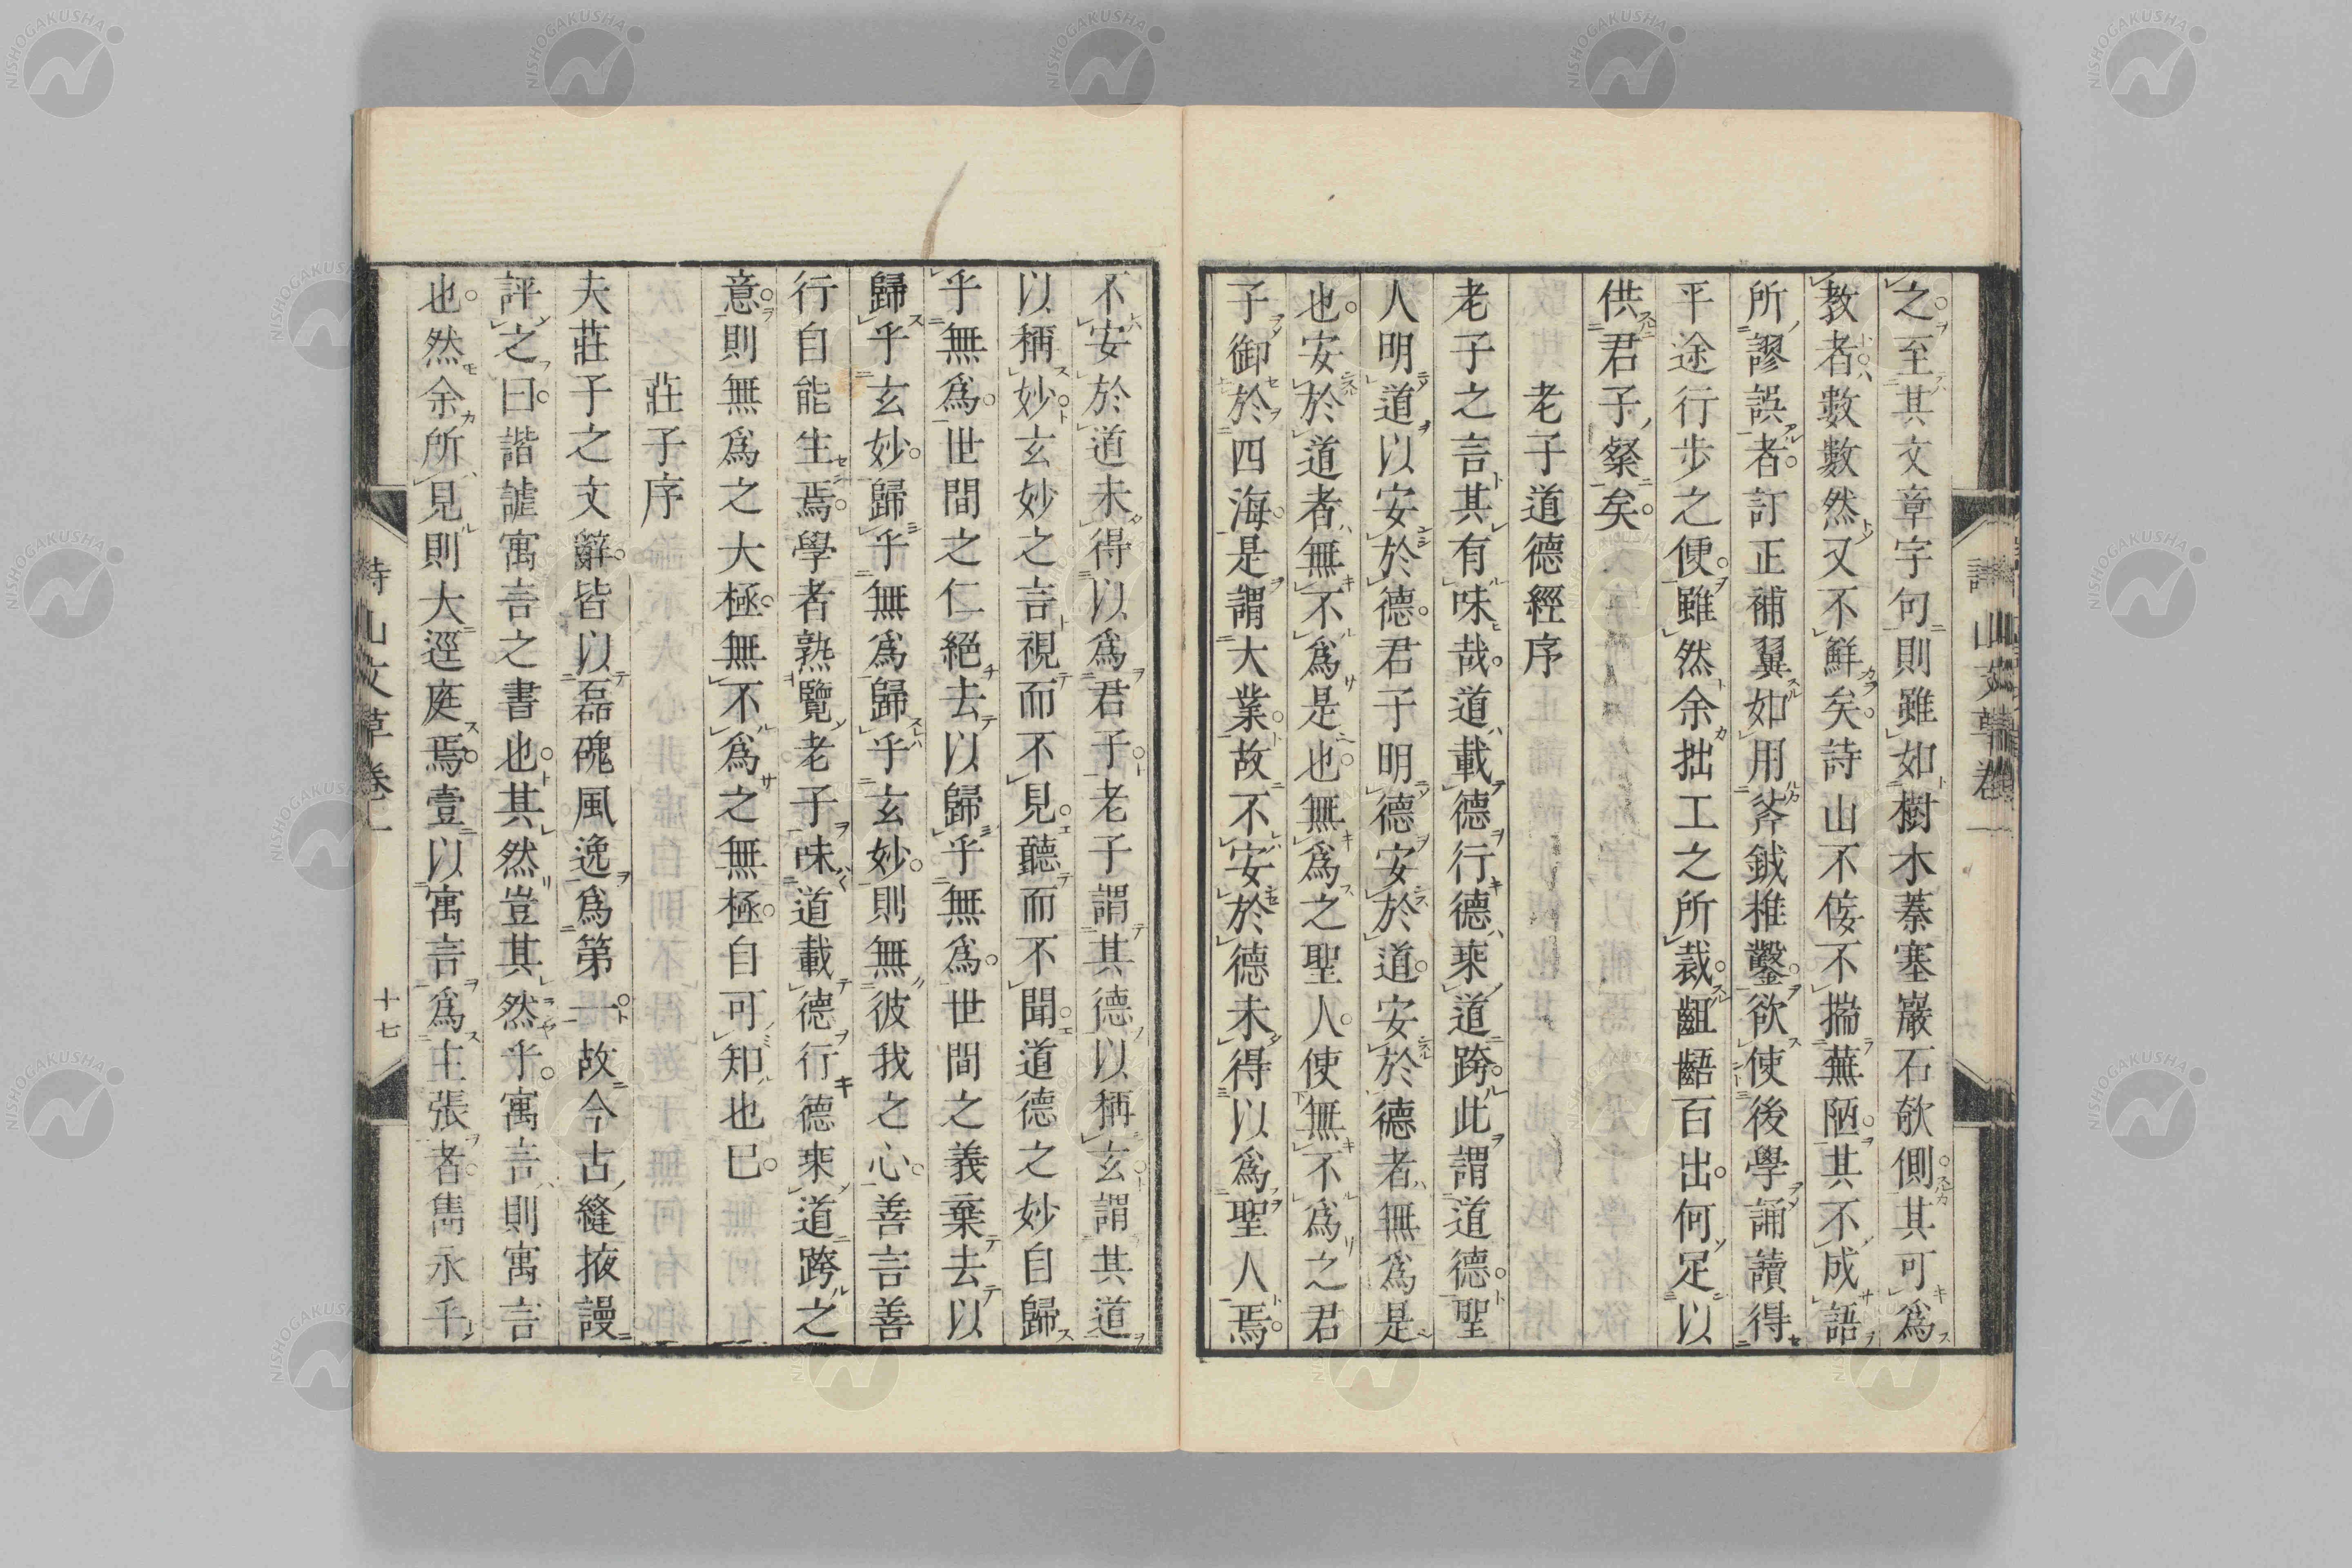 之至其文章字句則雖如樹木蓁塞巖石欹側其可爲
教者數數然又不鮮矣詩山不佞不揣蕪陋其不成語
所謬誤者訂正補翼如用斧鉞椎鑿欲使後學誦讀得
平途行步之便雖然余拙工之所裁齟齬百出何足以
供君子粲矣
老子道德經序
老子之言其有味哉道載德行德乘道跨此謂道德聖
人明道以安於德君子明德安於道安於德者無爲是
也安於道者無不爲是也無爲之聖人使無不爲之君
子御於四海是謂大業故不安於德未得以爲聖人焉
不安於道未得以爲君子老子謂其德以稱玄謂其道
以稱妙玄妙之言視而不見聽而不聞道德之妙自歸
乎無爲世間之仁絕去以歸乎無爲世間之義棄去以
歸乎玄妙歸乎無爲歸乎玄妙則無彼我之心善言善
行自能生焉學者熟覽老子味道載德行德乘道跨之
意則無爲之大極無不爲之無極自可知也已
莊子序
夫莊子之文辭皆以磊磈風逸爲第一故今古縫掖謾
評之曰諧謔寓言之書也其然豈其然乎寓言則寓言
也然余所見則大逕庭焉壹以寓言爲主張者雋永乎
詩山文草卷一
十七
NISHOGAKUSHA